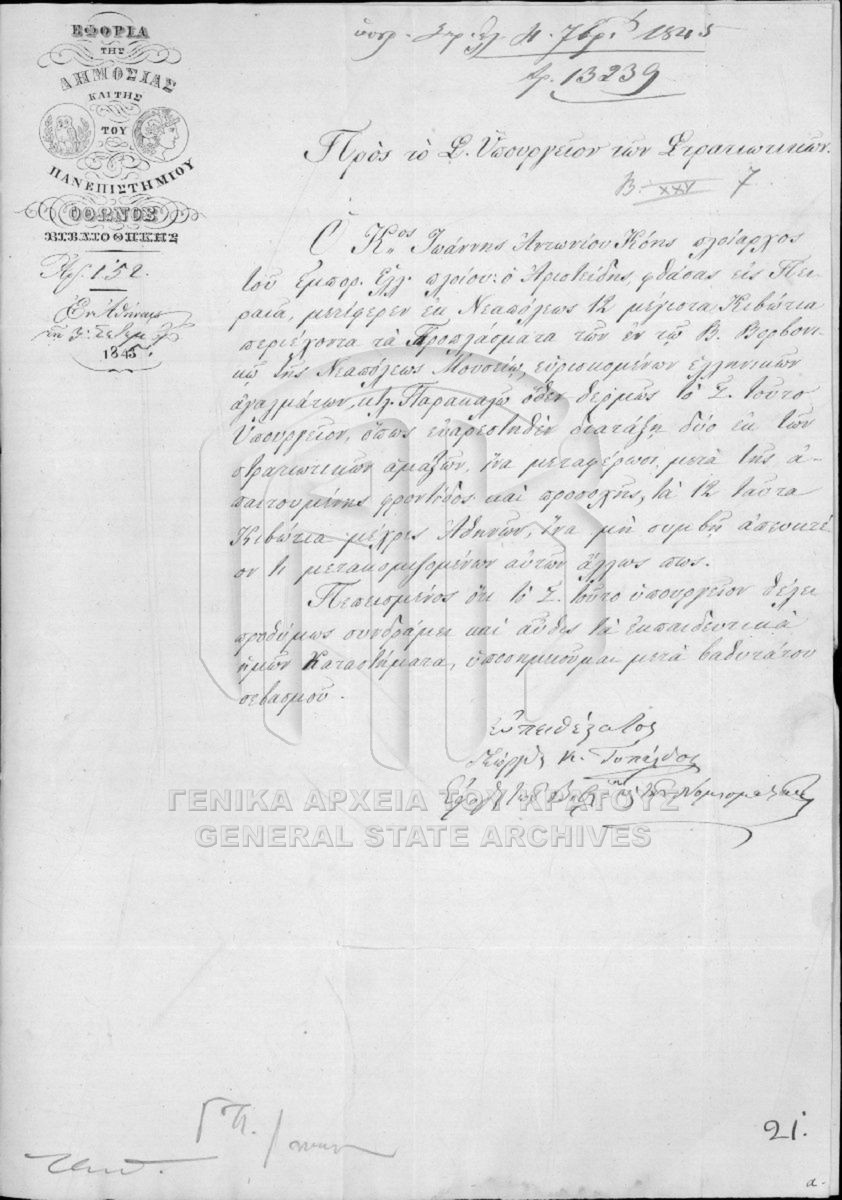 ΕΦΟΡΙΑ
ΤΗΣ
ΔΗΜΟΣΙΑΣ
ΚΑΙ ΤΗΣ
ΤΟΥ
ΠΑΝΕΠΙΣΤΗΜΙΟΥ
ΟΘΩΝΟΣ
ΒΙΒΛΙΟΘΗΚΗΣ
Ἀρ. 152.
Ἐν Ἀθήναις
τῇ 3 Σεπτεμ.
1845.
4. 7βρ. 1845
Ἀρ. 13239
Πρὸς τὸ Σ. Ὑπουργεῖον τῶν Στρατιωτικῶν.
B. XXV 7
Ὁ Κος Ἰωάννης Ἀντωνίου Κόης πλοίαρχος
τοῦ Ἐμπορ. Ἑλλ. πλοίου: ὁ Ἀριστείδης, φθάσας εἰς Πει-
ραιᾶ, μετέφερεν ἐκ Νεαπόλεως 12 μέγιστα Κιβώτια
περιέχοντα τὰ Προπλάσματα τῶν ἐν τῷ Β. Βορβονι-
κῷ τῆς Νεαπόλεως Μουσείῳ εὑρισκομένων ἑλληνικῶν
ἀγαλμάτων, κτλ. Παρακαλῶ ὅθεν θερμῶς τὸ Σ. τοῦτο
Ὑπουργεῖον, ὅπως εὐαρεστηθὲν διατάξῃ δύο ἐκ τῶν
στρατιωτικῶν ἁμαξῶν, ἵνα μεταφέρωσι, μετὰ τῆς ἀ-
παιτουμένης φροντίδος καὶ προσοχῆς, τὰ 12 ταῦτα
Κιβώτια μέχρις Ἀθηνῶν, ἵνα μὴ συμβῇ ἀπευκτέ-
ον τι μετακομιζομένων αὐτῶν ἄλλως πως.
Πεπεισμένος ὅτι τὸ Σ. τοῦτο ὑπουργεῖον θέλει
προθύμως συνδράμει καὶ αὖθις τὰ ἐκπαιδευτικὰ
ἡμῶν Καταστήματα, ὑποσημειοῦμαι μετὰ βαθυτάτου
σεβασμοῦ.
Εὐπειθέστατος
Γεώργιος Κ. Τυπάλδος
ΓΕΝΙΚΑ ΑΡΧΕΙΑ ΤΟΥ ΚΡΑΤΟΥΣ
GENERAL STATE ARCHIVES
21.
a.